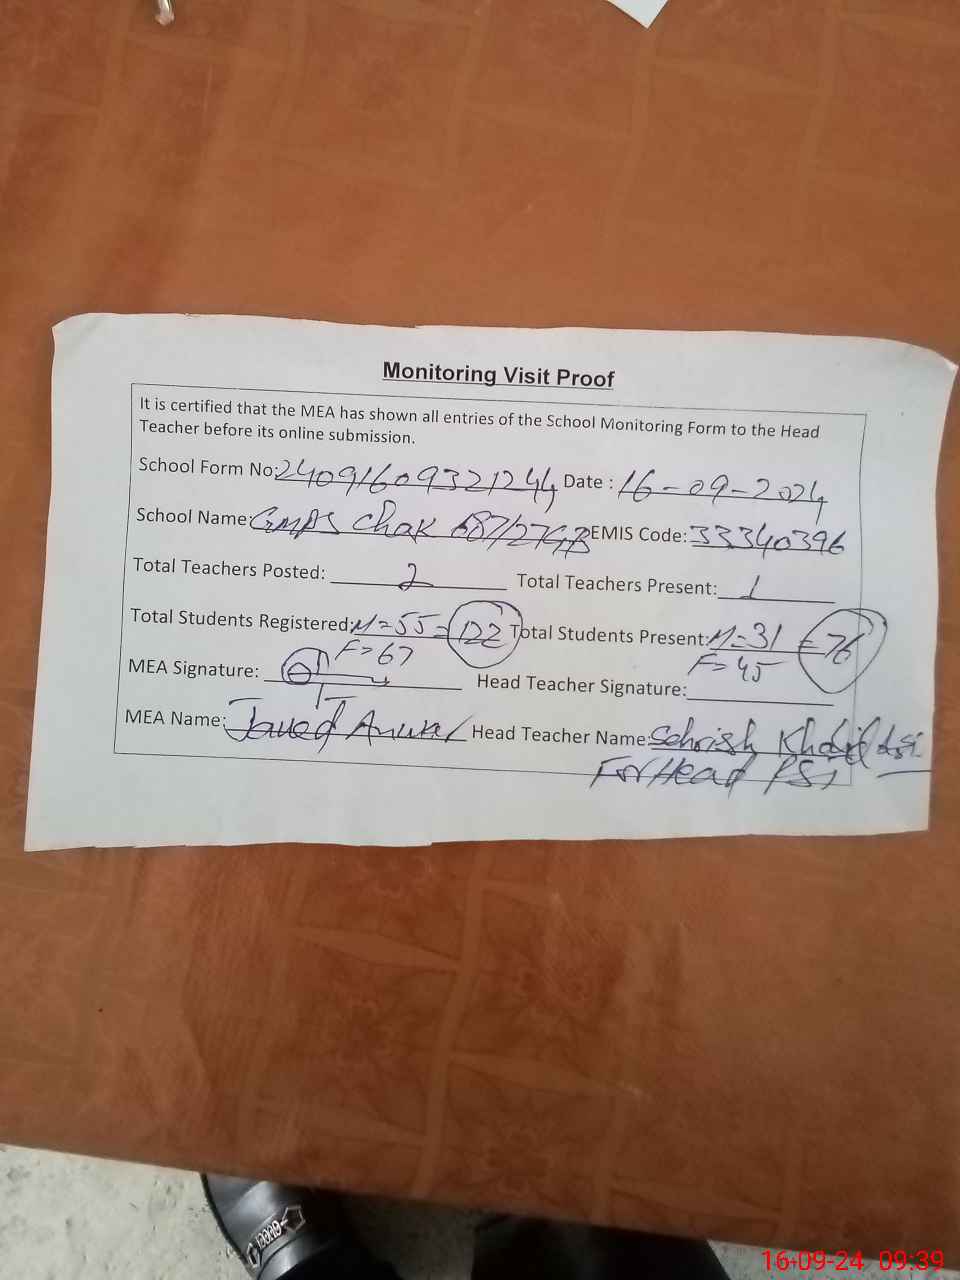 Monitoring Visit Proof
It is certified that the MEA has shown all entries of the School Monitoring Form to the Head
Teacher before its online submission.
School Form No: 24091609321244 Date : 16-09-2024
School Name: GMPS Chak 687/27GB EMIS Code: 33340396
Total Teachers Posted: 2 Total Teachers Present: 1
Total Students Registered: M=55 = 122 Total Students Present: M=31 = 76
F=67 F=45
MEA Signature: Head Teacher Signature:
MEA Name: Javed Anwar Head Teacher Name: Sehrish Khalil
For Head PST
16-09-24 09:39